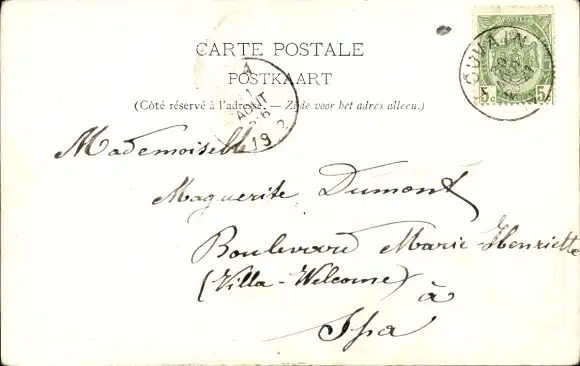 CARTE POSTALE
POSTKAART
(Côté réservé à l'adresse. — Zijde voor het adres alleen.)
Mademoiselle
Maguerite Dumont
Boulevard Marie Henriette
(Villa - Welcome)
à
Spa
AOUT
19 2
5c 5c